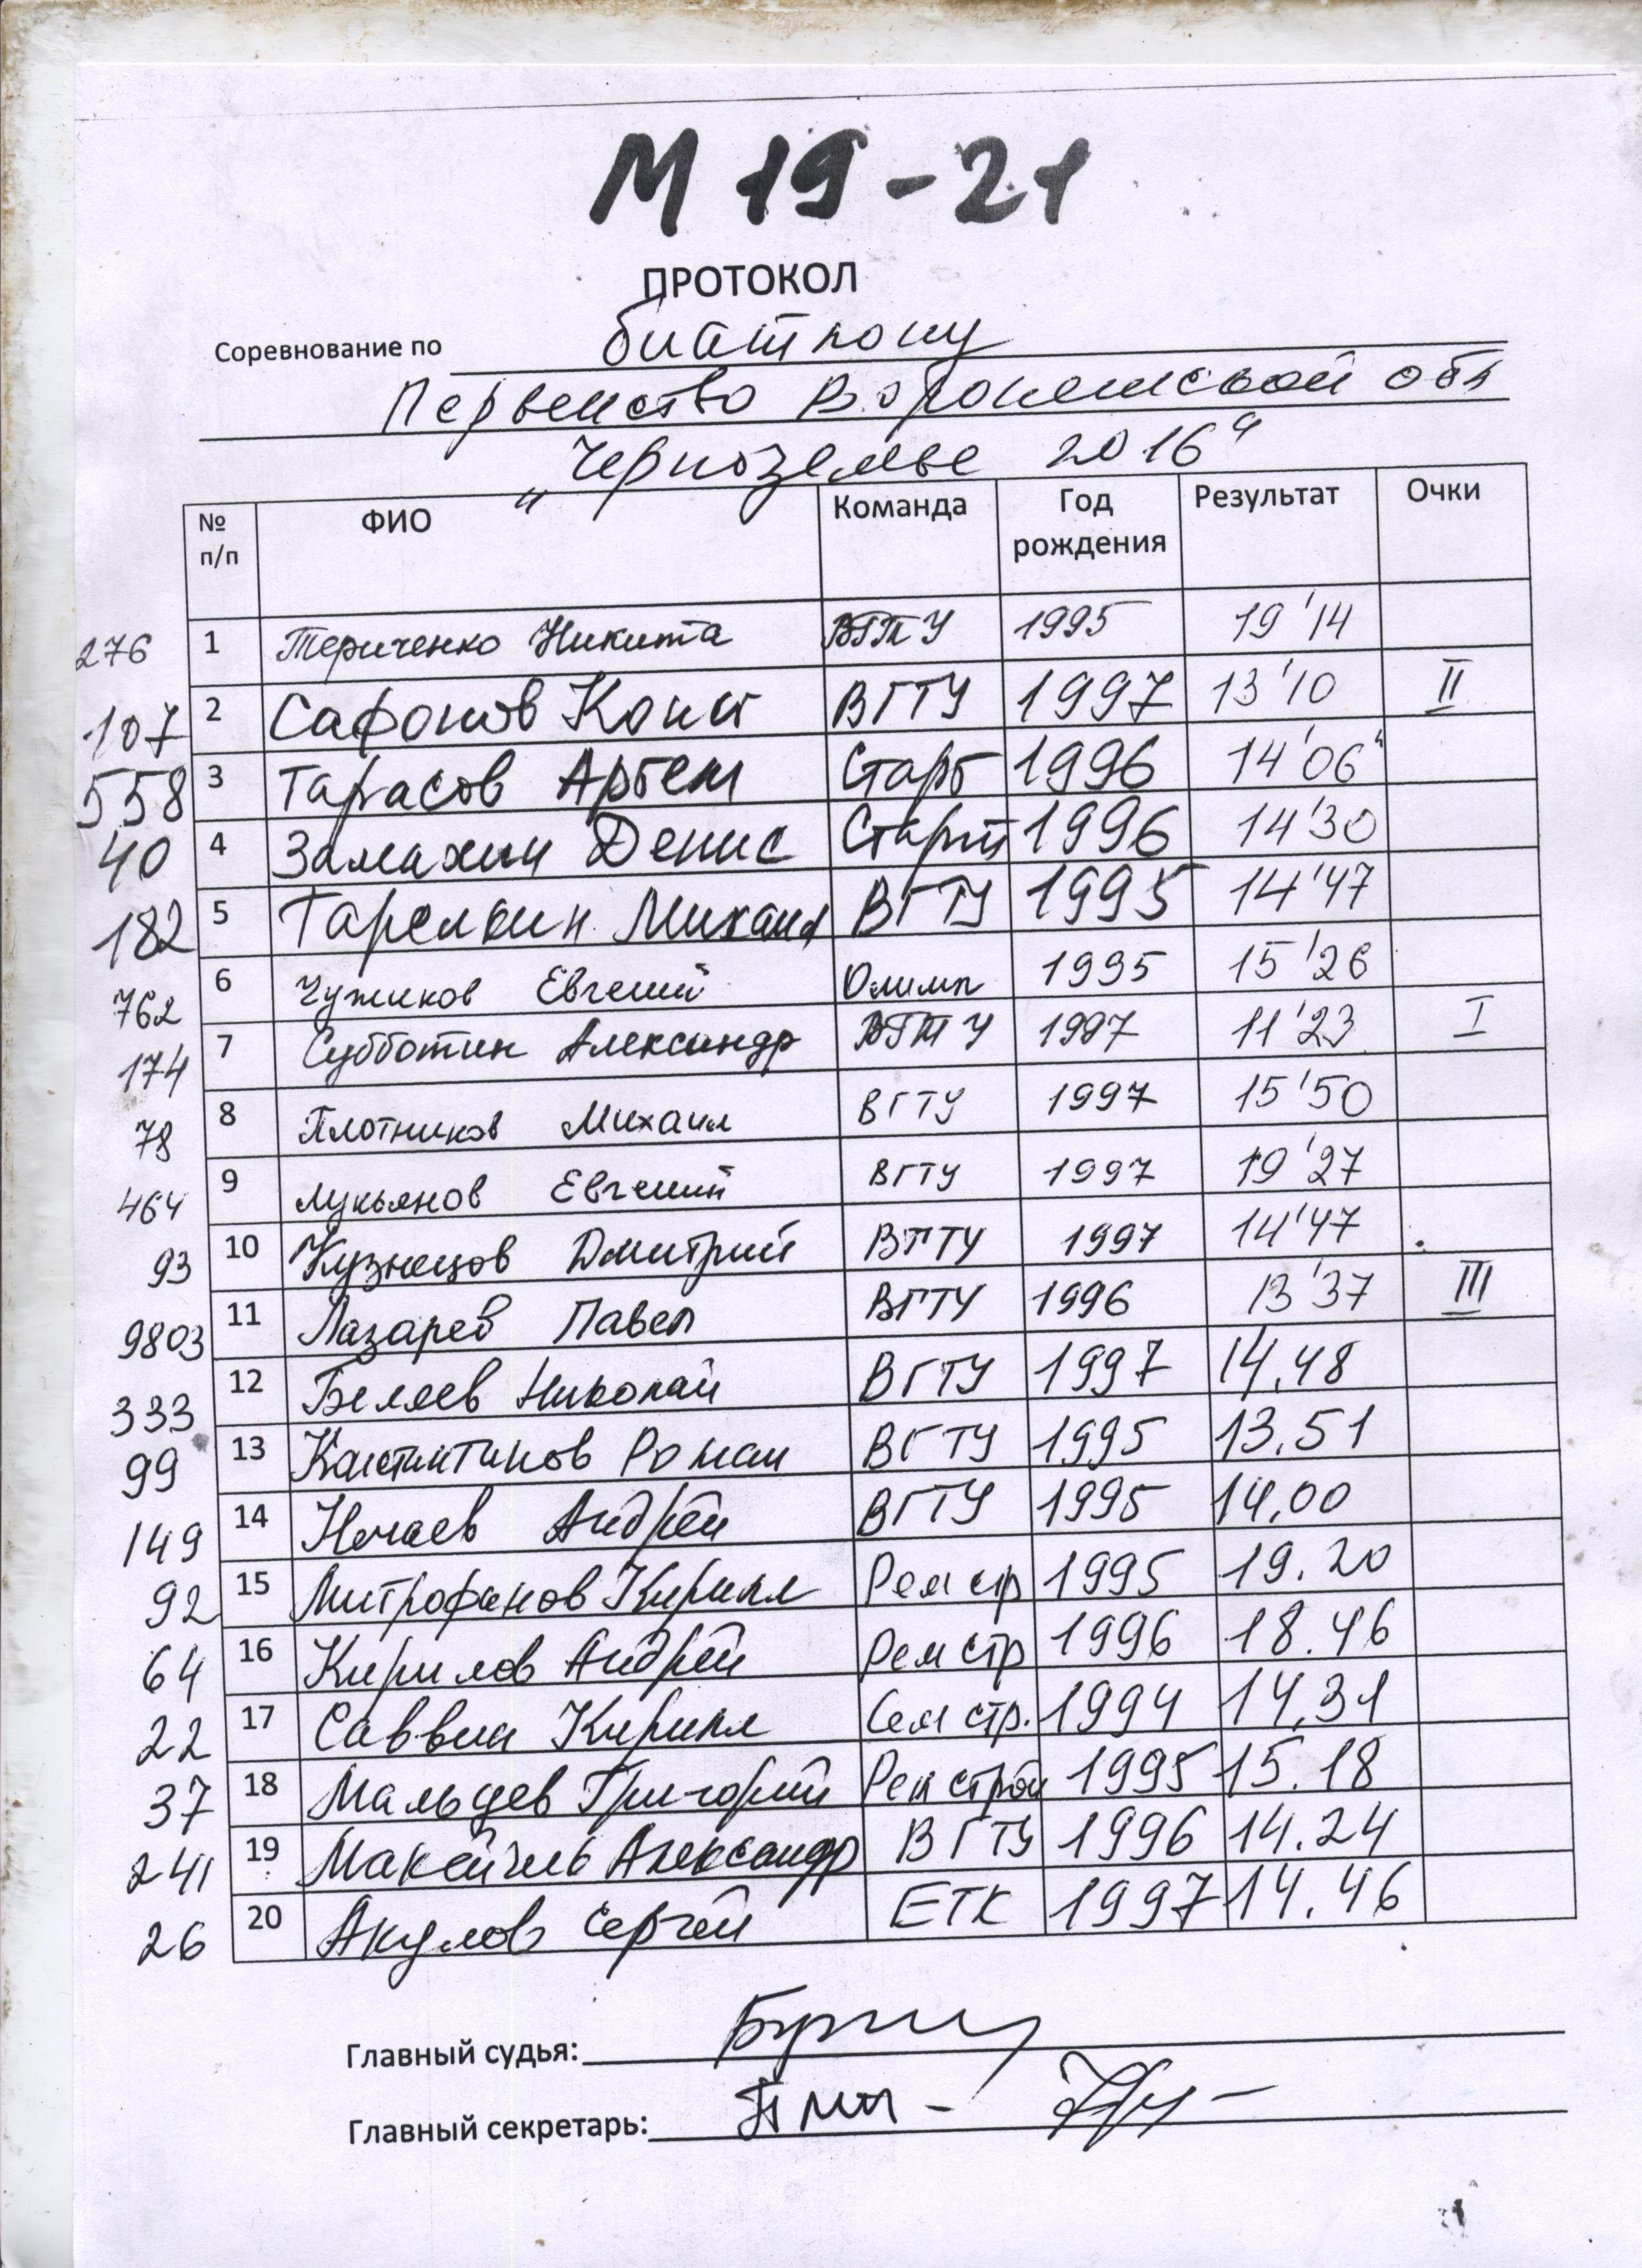 М 19-21
ПРОТОКОЛ
Соревнование по биатлону
Первенство Воронежской обл
"Черноземье 2016"
№ п/п ФИО Команда Год рождения Результат Очки
276 1 Териченко Никита ВГТУ 1995 19'14
107 2 Сафонов Конст ВГТУ 1997 13'10 II
558 3 Тарасов Артем Старт 1996 14'06"
40 4 Замахин Денис Старт 1996 14'30
182 5 Тарелкин Михаил ВГТУ 1995 14'47
762 6 Чужиков Евгений Олимп 1995 15'26
174 7 Субботин Александр ВГТУ 1997 11'23 I
78 8 Плотников Михаил ВГТУ 1997 15'50
464 9 Лукьянов Евгений ВГТУ 1997 19'27
93 10 Кузнецов Дмитрий ВГТУ 1997 14'47
9803 11 Лазарев Павел ВГТУ 1996 13'37 III
333 12 Беляев Николай ВГТУ 1997 14.48
99 13 Константинов Роман ВГТУ 1995 13.51
149 14 Нечаев Андрей ВГТУ 1995 14.00
92 15 Митрофанов Кирилл Рем стр 1995 19.20
64 16 Кирилов Андрей Рем стр 1996 18.46
22 17 Саввин Кирилл стр. 1994 14.31
37 18 Мальцев Григорий Рем строй 1995 15.18
241 19 Александр ВГТУ 1996 14.24
26 20 Акулов Сергей ЕТК 1997 14.46
Главный судья:
Главный секретарь: